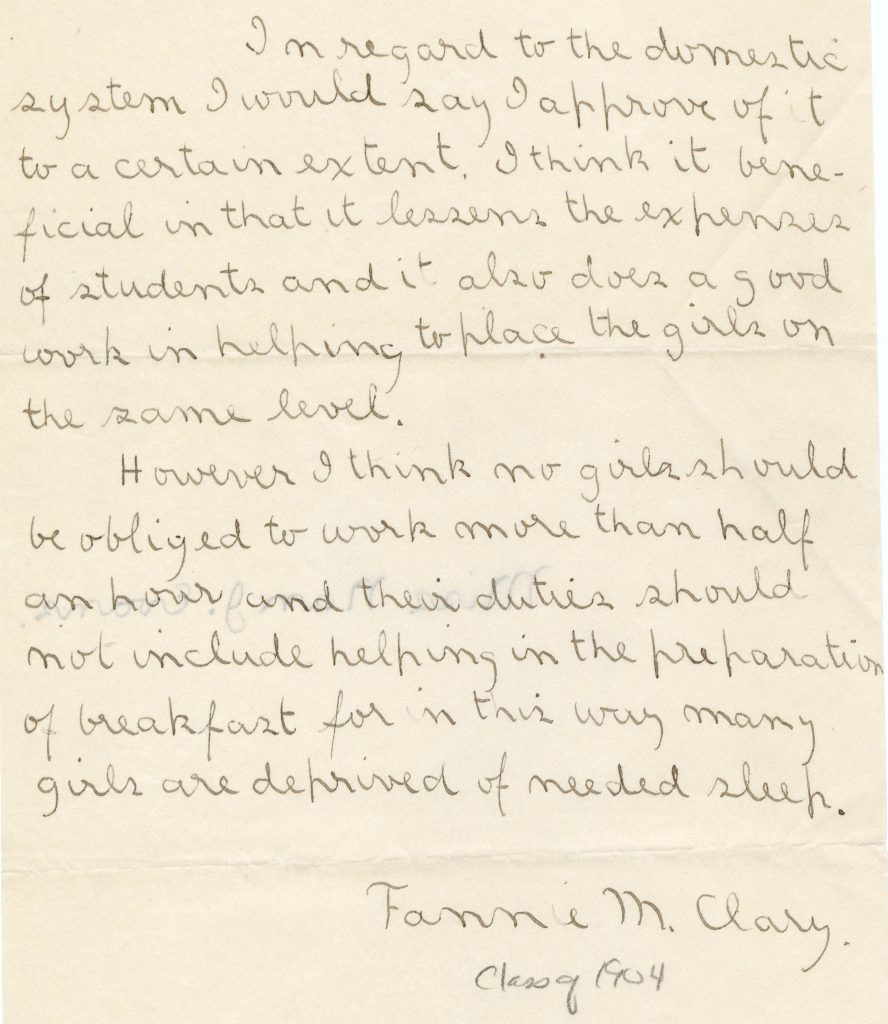 In regard to the domestic
system I would say I approve of it
to a certain extent. I think it bene-
ficial in that it lessens the expenses
of students and it also does a good
work in helping to place the girls on
the same level.
However I think no girls should
be obliged to work more than half
an hour and their duties should
not include helping in the preparation
of breakfast for in this way many
girls are deprived of needed sleep.
Fannie M. Clary.
Class of 1904